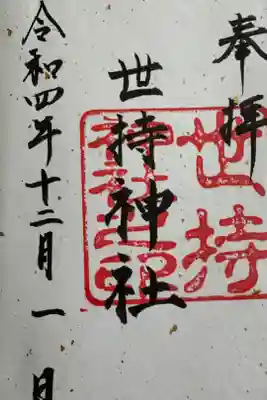 奉拝
世持神社
世持神社印
令和四年十二月一日